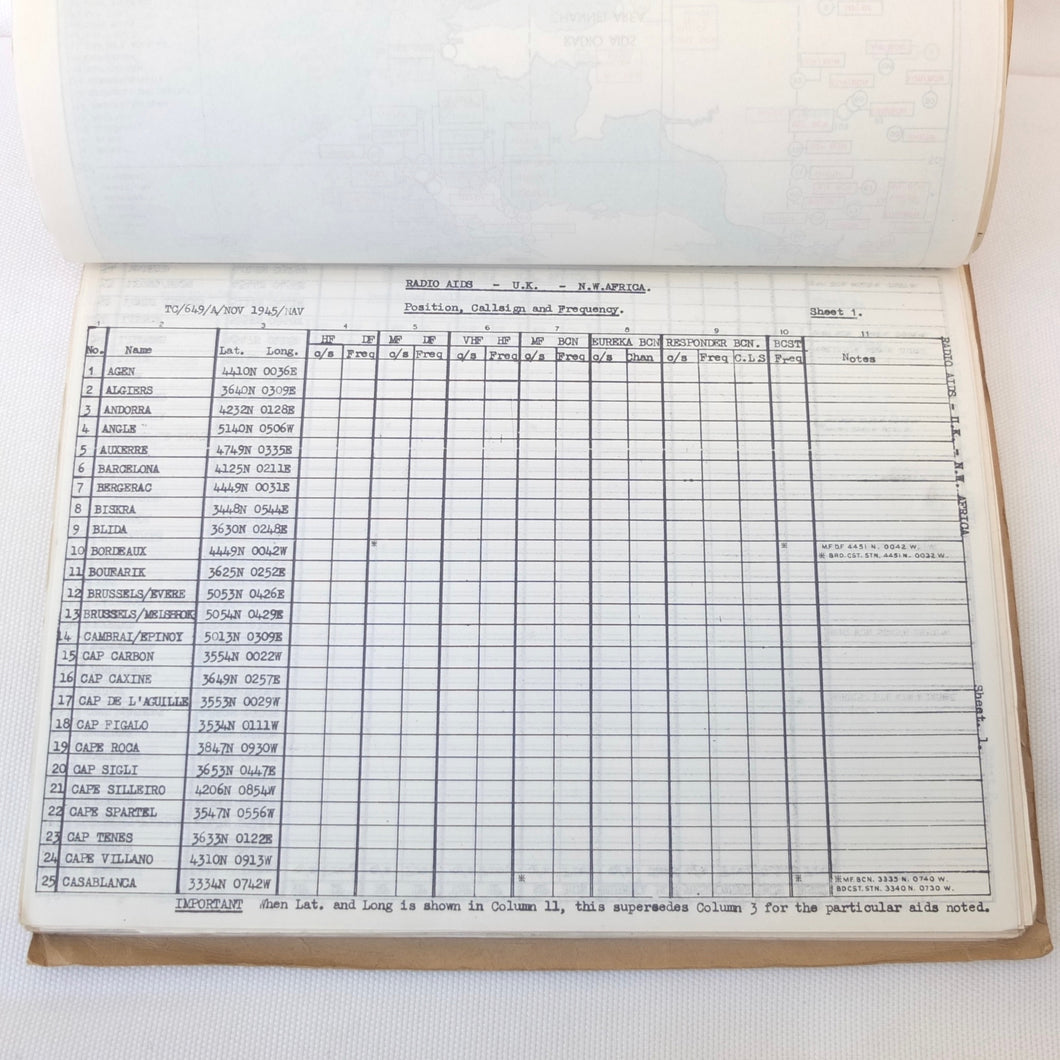 CHANNEL AREA
RADIO AIDS
RADIO AIDS - U.K. - N.W.AFRICA.
TC/649/A/NOV 1945/NAV Position, Callsign and Frequency. Sheet 1.
1 2 3 4 5 6 7 8 9 10 11
HF DF MF DF VHF HF MF BCN EUREKA BCN RESPONDER BCN. BCST
No. Name Lat. Long. c/s Freq c/s Freq c/s Freq c/s Freq c/s Chan c/s Freq C.L.S Freq Notes
1 AGEN 4410N 0036E
2 ALGIERS 3640N 0309E
3 ANDORRA 4232N 0128E
4 ANGLE 5140N 0506W
5 AUXERRE 4749N 0335E
6 BARCELONA 4125N 0211E
7 BERGERAC 4449N 0031E
8 BISKRA 3448N 0544E
9 BLIDA 3630N 0248E
10 BORDEAUX 4449N 0042W * * M.F.D.F 4451 N. 0042 W.
* BRD.CST. STN. 4451 N. 0032 W.
11 BOUFARIK 3625N 0252E
12 BRUSSELS/EVERE 5053N 0426E
13 BRUSSELS/MELSBROK 5054N 0429E
14 CAMBRAI/EPINOY 5013N 0309E
15 CAP CARBON 3554N 0022W
16 CAP CAXINE 3649N 0257E
17 CAP DE L'AGUILLE 3553N 0029W
18 CAP FIGALO 3534N 0111W
19 CAPE ROCA 3847N 0930W
20 CAP SIGLI 3653N 0447E
21 CAPE SILLEIRO 4206N 0854W
22 CAPE SPARTEL 3547N 0556W
23 CAP TENES 3633N 0122E
24 CAPE VILLANO 4310N 0913W
25 CASABLANCA 3334N 0742W * * *M.F. BCN. 3335 N. 0740 W.
BDCST. STN. 3340 N. 0730 W.
IMPORTANT When Lat. and Long is shown in Column 11, this supersedes Column 3 for the particular aids noted.
RADIO AIDS - U.K. - N.W. AFRICA
Sheet. 1.